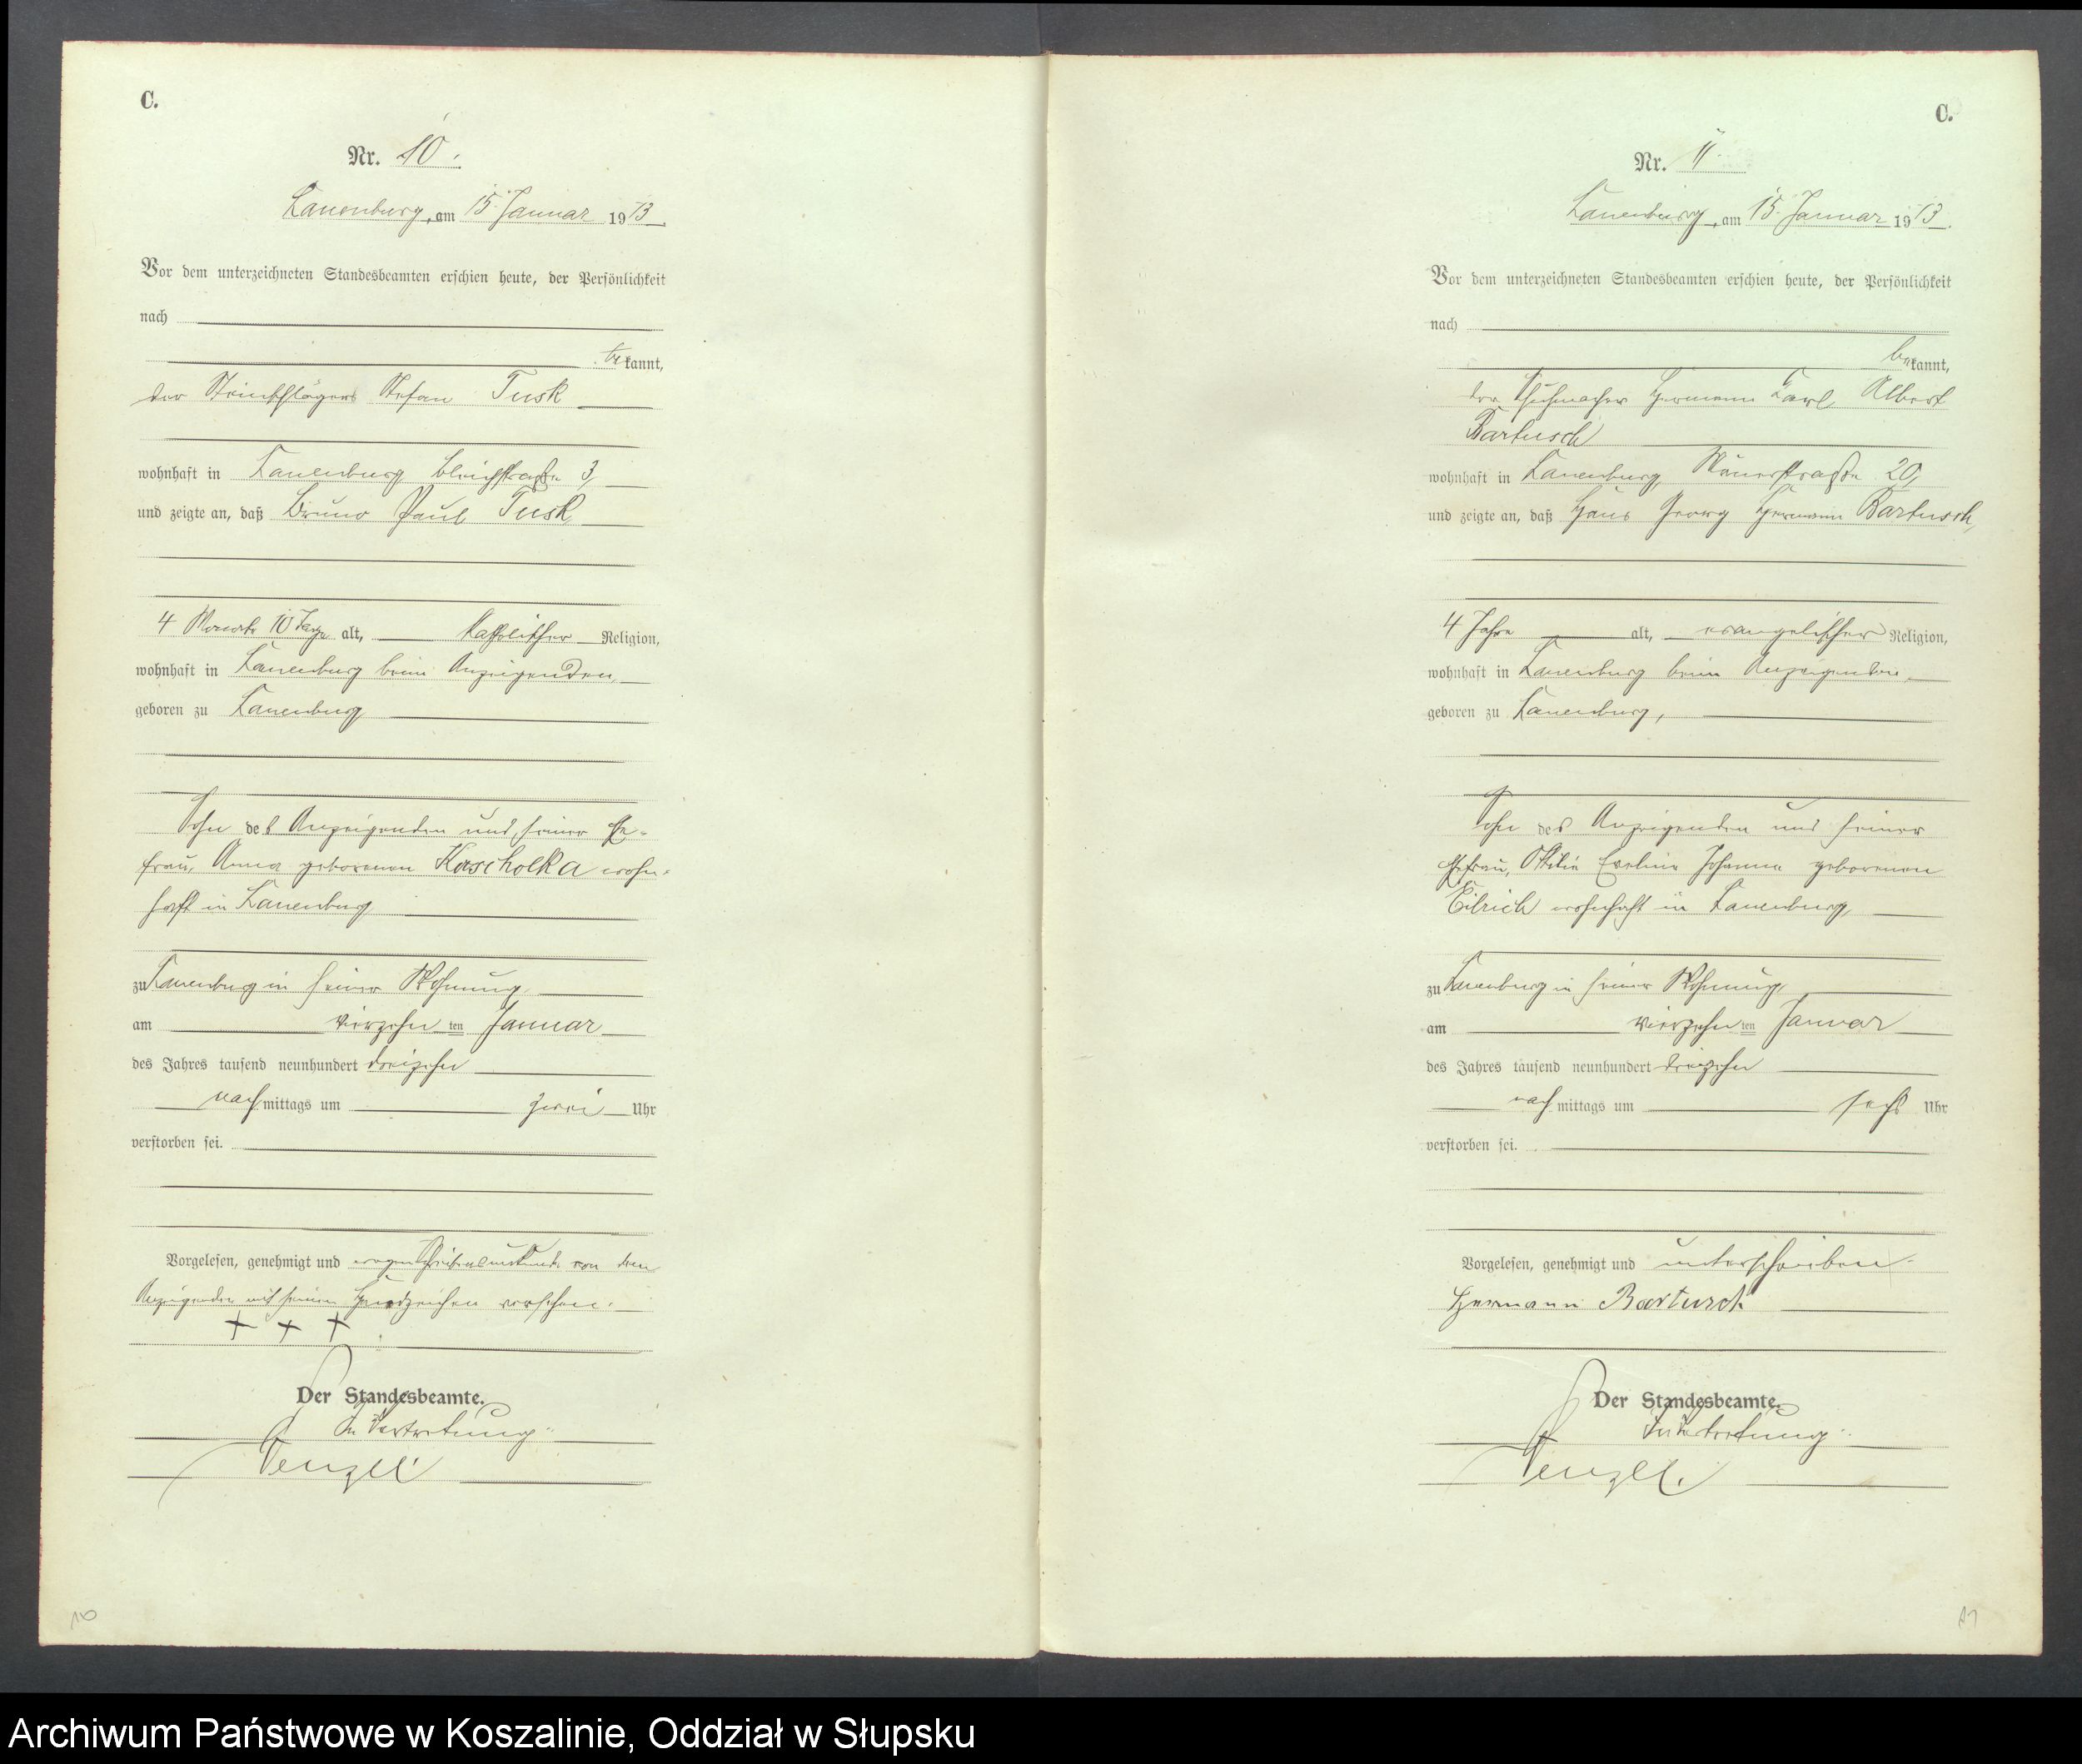 C.
Nr. 10.
Lauenburg, am 15. Januar 1913.
Vor dem unterzeichneten Standesbeamten erschien heute, der Persönlichkeit
nach
bekannt,
der Steinschläger Stefan Tusk
wohnhaft in Lauenburg Bleichstraße 3,
und zeigte an, daß Bruno Paul Tusk,
4 Monate 10 Tage alt, katholischer Religion,
wohnhaft in Lauenburg beim Anzeigenden,
geboren zu Lauenburg
Sohn des Anzeigenden und seiner Ehe-
frau, Anna geborenen Kascholka wohn-
haft in Lauenburg
zu Lauenburg in seiner Wohnung,
am vierzehnten Januar
des Jahres tausend neunhundert dreizehn
nachmittags um zwei Uhr
verstorben sei.
Vorgelesen, genehmigt und wegen Schreibensunkunde von dem
Anzeigenden mit seinem Handzeichen versehen.
+ + +
Der Standesbeamte.
In Vertretung:
Wenzel
10
C.
Nr. 11
Lauenburg, am 15. Januar 1913.
Vor dem unterzeichneten Standesbeamten erschien heute, der Persönlichkeit
nach
bekannt,
der Schuhmacher Hermann Karl Albert
Bartusch
wohnhaft in Lauenburg, 20,
und zeigte an, daß Hans Georg Hermann Bartusch,
4 Jahre alt, evangelischer Religion,
wohnhaft in Lauenburg beim Anzeigenden,
geboren zu Lauenburg,
Sohn des Anzeigenden und seiner
Ehefrau, Ottilie Eveline Johanna geborenen
Eilrich wohnhaft in Lauenburg,
zu Lauenburg in seiner Wohnung,
am vierzehnten Januar
des Jahres tausend neunhundert dreizehn
nachmittags um sechs Uhr
verstorben sei.
Vorgelesen, genehmigt und unterschrieben
Hermann Bartusch
Der Standesbeamte.
In Vertretung:
Wenzel.
11
Archiwum Państwowe w Koszalinie, Oddział w Słupsku